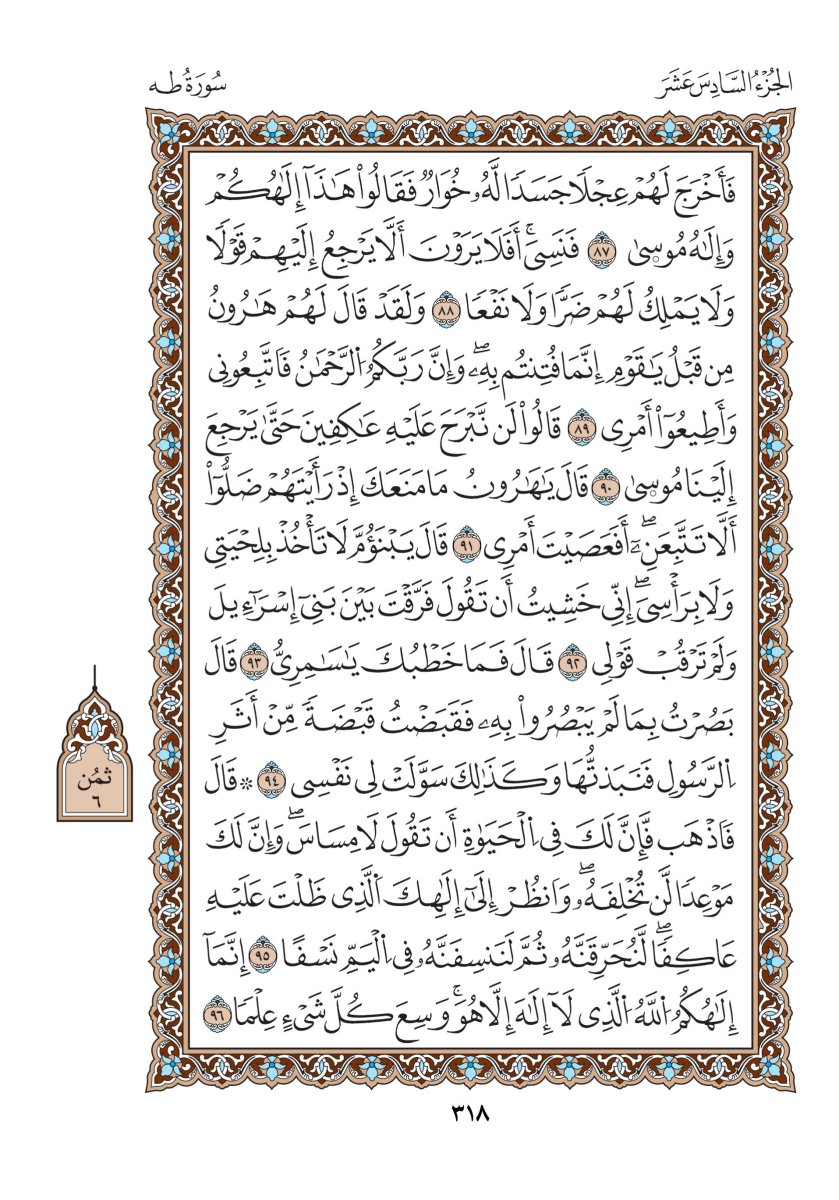 الجُزْءُ السَّادِسَ عَشَرَ
سُورَةُ طه
فَأَخْرَجَ لَهُمْ عِجْلًا جَسَدًا لَّهُۥ خُوَارٌ فَقَالُوا۟ هَٰذَآ إِلَٰهُكُمْ
وَإِلَٰهُ مُوسِىٰ ٨٧ فَنَسِىَۚ أَفَلَا يَرَوْنَ أَلَّا يَرْجِعُ إِلَيْهِمْ قَوْلًا
وَلَا يَمْلِكُ لَهُمْ ضَرًّا وَلَا نَفْعًا ٨٨ وَلَقَدْ قَالَ لَهُمْ هَٰرُونُ
مِن قَبْلُ يَٰقَوْمِ إِنَّمَا فُتِنتُم بِهِۦۖ وَإِنَّ رَبَّكُمُ ٱلرَّحْمَٰنُ فَٱتَّبِعُونِى
وَأَطِيعُوٓا۟ أَمْرِى ٨٩ قَالُوا۟ لَن نَّبْرَحَ عَلَيْهِ عَٰكِفِينَ حَتَّىٰ يَرْجِعَ
إِلَيْنَا مُوسِىٰ ٩٠ قَالَ يَٰهَٰرُونُ مَا مَنَعَكَ إِذْ رَأَيْتَهُمْ ضَلُّوٓا۟
أَلَّا تَتَّبِعَنِۦٓۖ أَفَعَصَيْتَ أَمْرِى ٩١ قَالَ يَبْنَؤُمَّ لَا تَأْخُذْ بِلِحْيَتِى
وَلَا بِرَأْسِىٓۖ إِنِّى خَشِيتُ أَن تَقُولَ فَرَّقْتَ بَيْنَ بَنِىٓ إِسْرَٰٓءِيلَ
وَلَمْ تَرْقُبْ قَوْلِى ٩٢ قَالَ فَمَا خَطْبُكَ يَٰسَٰمِرِىُّ ٩٣ قَالَ
بَصُرْتُ بِمَا لَمْ يَبْصُرُوا۟ بِهِۦ فَقَبَضْتُ قَبْضَةً مِّنْ أَثَرِ
ٱلرَّسُولِ فَنَبَذتُّهَا وَكَذَٰلِكَ سَوَّلَتْ لِى نَفْسِى ٩٤ ۞ قَالَ
فَٱذْهَب فَّإِنَّ لَكَ فِى ٱلْحَيَوٰةِ أَن تَقُولَ لَا مِسَاسَۖ وَإِنَّ لَكَ
مَوْعِدًا لَّن تُخْلِفَهُۥۖ وَٱنظُرْ إِلَىٰٓ إِلَٰهِكَ ٱلَّذِى ظَلْتَ عَلَيْهِ
عَاكِفًاۖ لَّنُحَرِّقَنَّهُۥ ثُمَّ لَنَنسِفَنَّهُۥ فِى ٱلْيَمِّ نَسْفًا ٩٥ إِنَّمَآ
إِلَٰهُكُمُ ٱللَّهُ ٱلَّذِى لَآ إِلَٰهَ إِلَّا هُوَۚ وَسِعَ كُلَّ شَىْءٍ عِلْمًا ٩٦
ثُمُن
٦
٣١٨